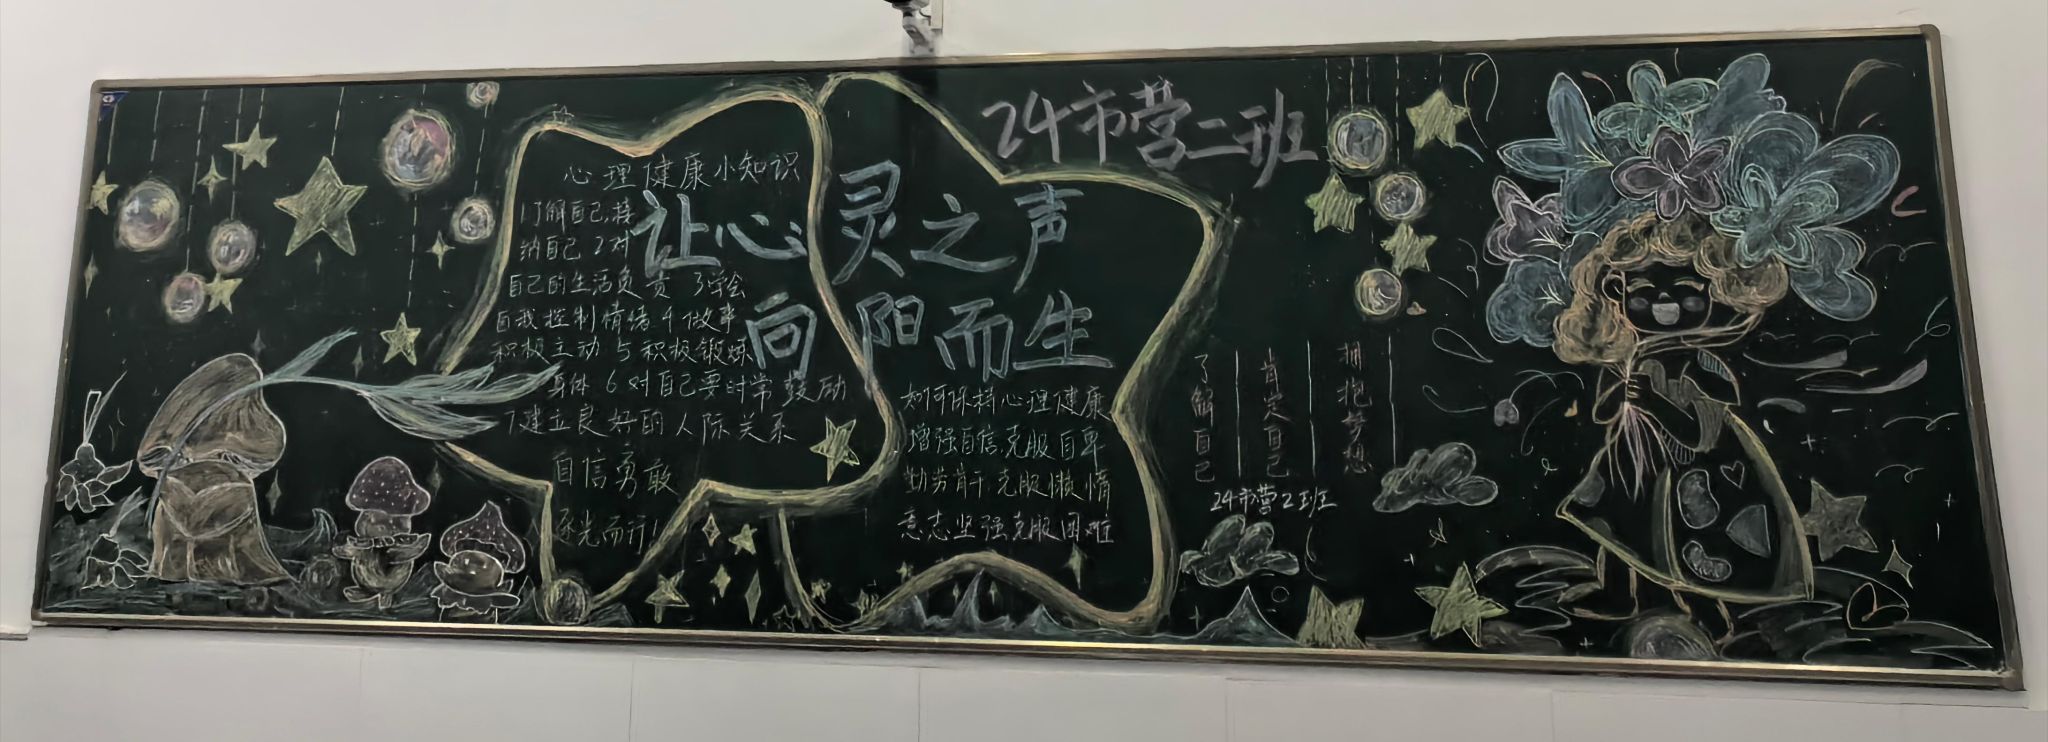 24市营二班
让心灵之声
向阳而生
心理健康小知识
1了解自己,接
纳自己 2对
自己的生活负责 3学会
自我控制情绪 4做事
积极主动 5积极锻炼
身体 6对自己要时常鼓励
7建立良好的人际关系
自信勇敢
逐光而行!
如何保持心理健康
增强自信,克服自卑
勤劳肯干,克服懒惰
意志坚强克服困难
了解自己
肯定自己
拥抱梦想
24市营2班